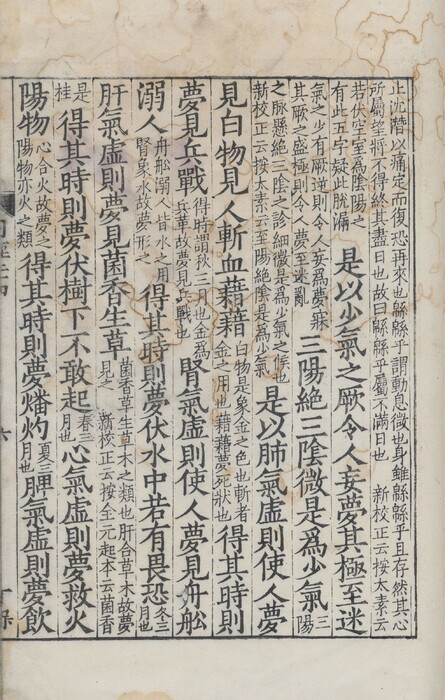 止沈潛以痛定而復恐再來也緜緜乎謂動息微也身雖緜緜乎且存然其心
所屬望將不得終其盡日也故曰緜緜乎屬不滿日也 新校正云按太素云
若伏空室爲陰陽之有此五字疑此脫漏是以少氣之厥令人妄夢其極至迷
氣之少有厥逆則令人妄爲夢寐其厥之盛極則令人夢至迷亂三陽絕三陰微是爲少氣三陽
之脉懸絕三陰之診細微是爲少氣之候也新校正云按太素云至陽絕陰是爲少氣是以肺氣虛則使人夢
見白物見人斬血藉藉白物是象金之色也斬者金之用也藉藉夢死狀也得其時則
夢見兵戰得時謂秋三月也金爲兵革故夢見兵戰也腎氣虛則使人夢見舟舩
溺人舟舩溺人皆水之用腎象水故夢形之得其時則夢伏水中若有畏恐冬三月也
肝氣虛則夢見菌香生草菌香草生草木之類也肝合草木故夢見之 新校正云按全元起本云菌香
是桂得其時則夢伏樹下不敢起春三月也心氣虛則夢救火
陽物心合火故夢之陽物亦火之類得其時則夢燔灼夏三月也脾氣虛則夢飲
六